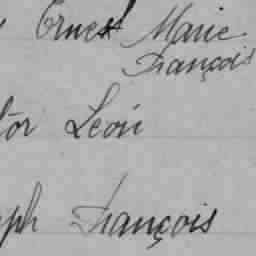 Ernest Marie
François
tor Léon
eph François